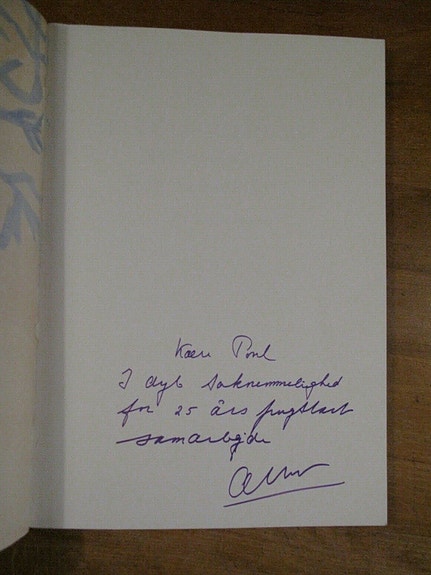 Kære Poul
I dyb taknemmelighed
for 25 års frugtbart
samarbejde